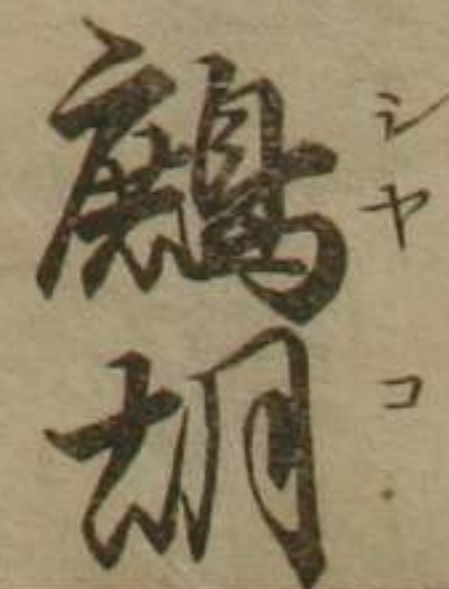 鷓胡
シヤコ